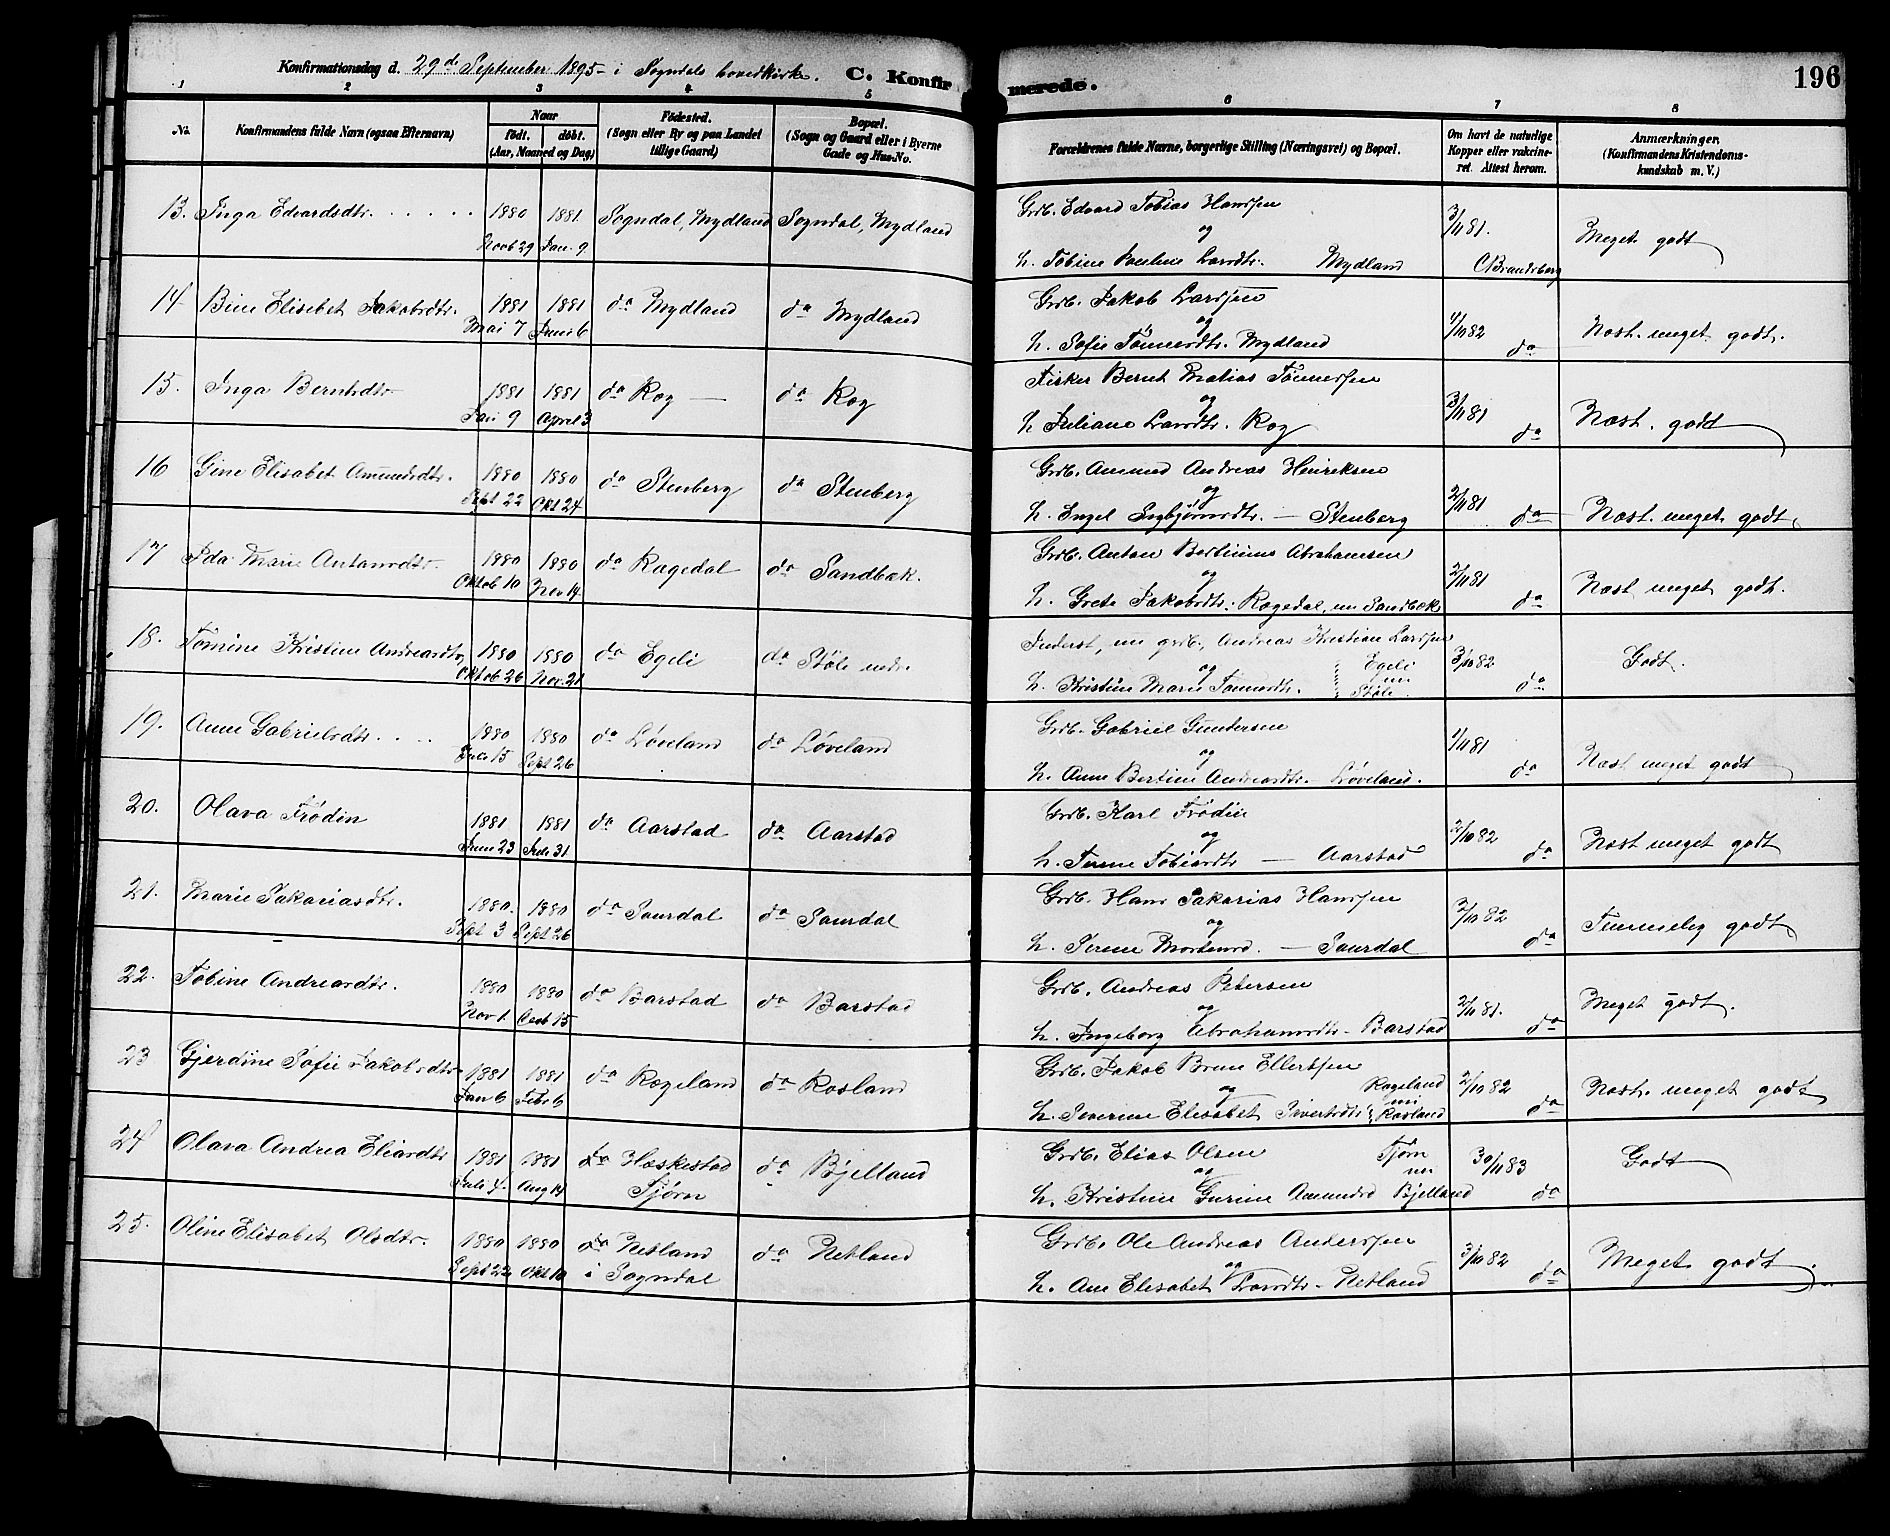 Konfirmationsdag d. 29de September 1895 i Sogndals hovedkirke. C. Konfirmerede. 196
1 2 3 4 5 6 7 8
No. Konfirmandens fulde Navn (ogsaa Efternavn) Naar født. døbt. (Aar, Maaned og Dag) Fødested. (Sogn eller By og paa Landet tillige Gaard) Bopæl. (Sogn og Gaard eller i Byerne Gade og Hus-No. Forældrenes fulde Navne, borgerlige Stilling (Næringsvei) og Bopæl. Om havt de naturlige Kopper eller vakcineret. Attest herom. Anmærkninger. (Konfirmandens Kristendomskundskab m. V.)
13. Inga Edvardsdtr. 1880 1881 Sogndal, Mydland Sogndal, Mydland Grdb. Edvard Tobias Hansen 3/11 81. Meget godt
Novb 29 Jan. 9 og
h. Tobine Pauline Larsdtr. Mydland C Brandsberg
14 Bine Elisebet Jakobsdtr. 1881 1881 do Mydland do Mydland Grdb. Jakob Larssen 4/10 82 Næst. meget godt.
Mai 7 Juni 6 og
h. Sofie Tønnesdtr. Mydland do
15. Inga Berntsdtr. 1881 1881 do Røg do Røg Fisker Bernt Matias Tønnessen 3/11 81 Næst. godt
Jan 9 April 3 og
h Juliane Larsdtr. Røg do
16 Gine Elisabet Amundsdtr. 1880 1880 do Stenberg do Stenberg Grdb. Amund Andreas Henriksen 2/11 81 Næst. meget godt
Sept 22 Okt 24 og
h. Engel Ingbjørnsdtr. — Stenberg do
17 Ida Marie Antonsdtr. 1880 1880 do Ragedal do Sandbæk. Grdb. Anton Bertinius Abrahamsen 2/11 81 Næst meget godt.
Oktob 10 Nov 14 og
h. Grete Jakobsdtr. Rægedal, nu Sandbæk do
18. Tomine Kristine Andreasdtr 1880 1880 do Egeli do Støle nedr. Inderst, nu grdb. Andreas Kristian Larssen 3/10 82 Godt.
Oktob 26 Nov. 21 og Egeli nu
h. Kristine Marie Tønnesdtr. Støle do
19. Anne Gabrielsdtr. 1880 1880 do Løveland do Løveland Grdb. Gabriel Gundersen 1/11 81 Næst meget godt
Juli 15 Sept 26 og
h. Anne Bertine Andreasdtr. Løveland. do
20. Olava Frødin 1881 1881 do Aarstad do Aarstad Grdb. Karl Frødin 2/10 82 Næst meget godt
Juni 23 Juli 31 og
h. Serine Tobiasdtr — Aarstad do
21. Marie Sakariasdtr. 1880. 1880 do Saurdal do Saurdal Grdb. Hans Sakarias Hanssen 2/10 82 Temmelig godt
Sept 3 Sept 26 og
h. Serine Mortensd. — Saurdal do
22. Tobine Andreasdtr. 1880 1880 do Barstad do Barstad Grdb. Andreas Petersen 2/11 81. Meget godt.
Nov 1. Decb 15 og
h. Ingeborg Abrahamsdtr. Barstad do
23 Gjerdine Sofie Jakobsdtr 1881 1881 do Rægeland do Rosland Grdb. Jakob Brune Ellertsen 2/10 82 Næst. meget godt
Jan 6 Febr 6 og Rageland nu
h. Severine Elisabet Sivertsdtr Rosland do
24 Olava Andrea Eliasdtr 1881 1881 do Hæskestad do Bjelland Grdb. Elias Olsen Tjørn 30/11 83 Godt
Juli 4. Aug 14 Tjørn og nu
h. Kristine Gurine Amundsd Bjelland do
25. Oline Elisabet Olsdtr. 1880 1880 do Netland do Netland Grdb. Ole Andreas Anderssen 3/10 82 Meget godt.
Sept 22 Okt 10 i Sogndal og
h. Ane Elisabet Larsdtr. Netland do